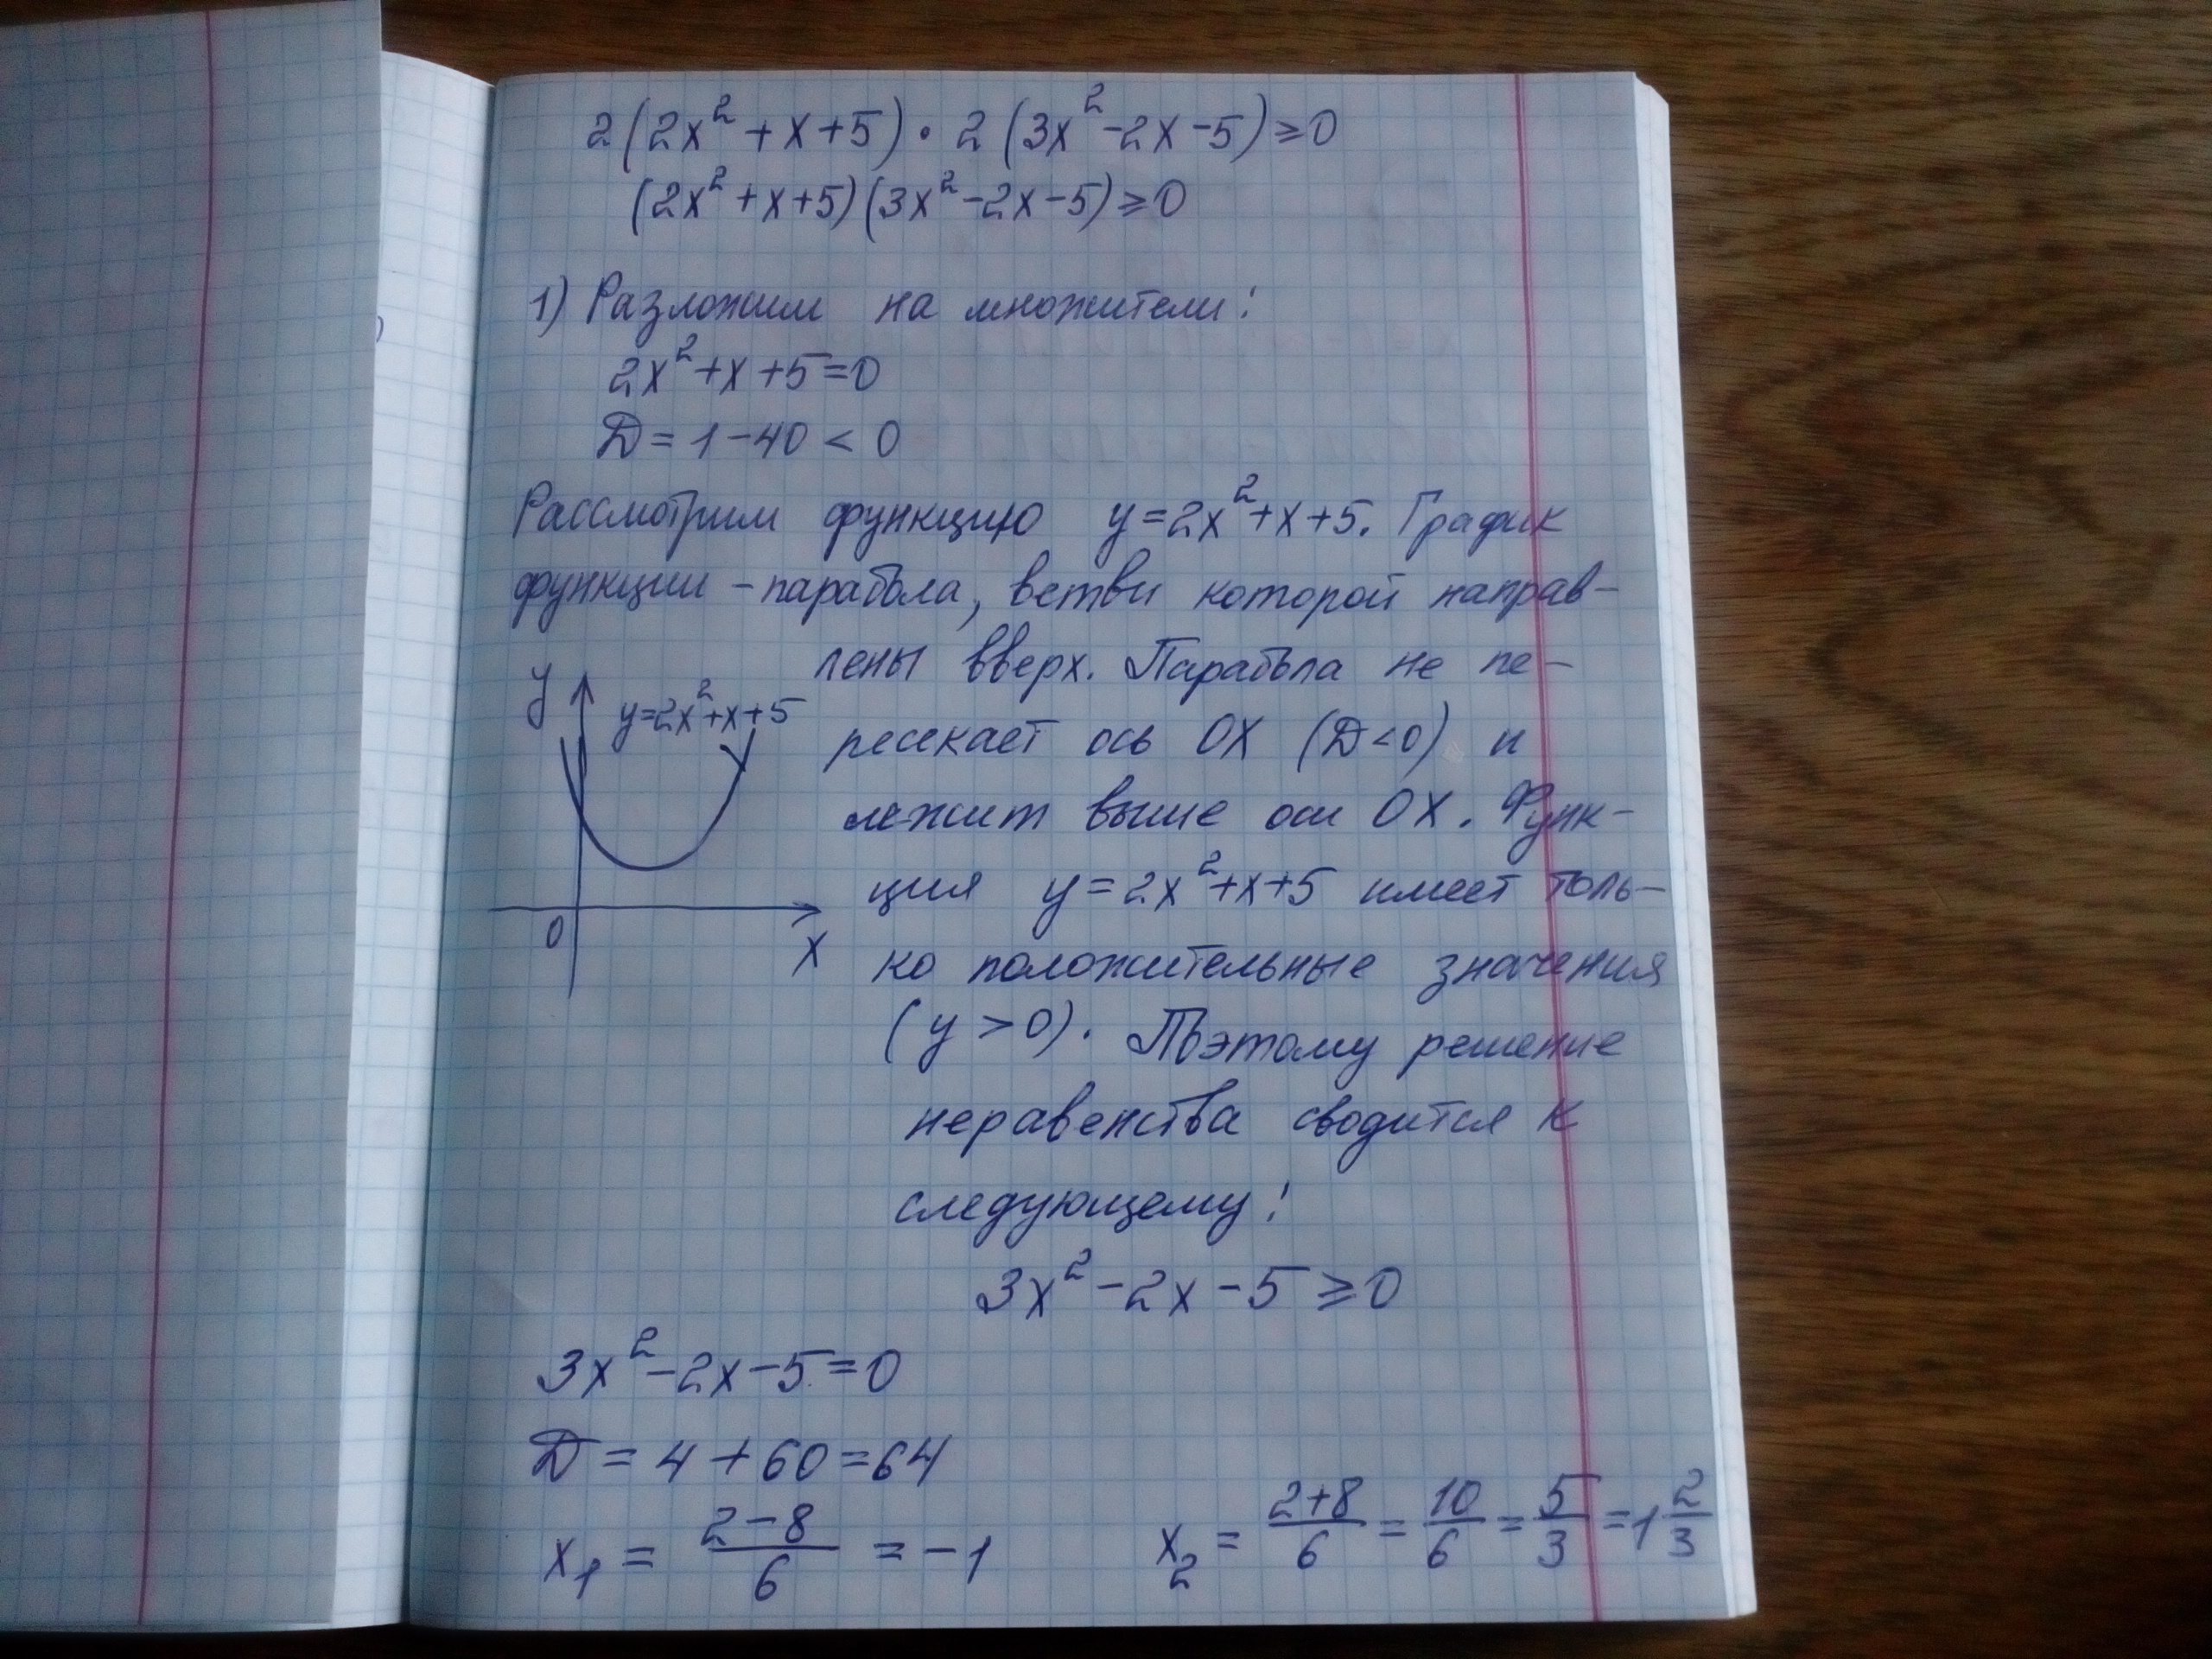 2(2x²+x+5)·2(3x²-2x-5)≥0
(2x²+x+5)(3x²-2x-5)≥0
1) Разложим на множители:
2x²+x+5=0
D=1-40<0
Рассмотрим функцию y=2x²+x+5. График
функции - парабола, ветви которой направ-
лены вверх. Парабола не пе-
ресекает ось OX (D<0) и
лежит выше оси OX. Функ-
ция y=2x²+x+5 имеет толь-
ко положительные значения
(y>0). Поэтому решение
неравенства сводится к
следующему:
y
y=2x²+x+5
0
x
3x²-2x-5≥0
3x²-2x-5=0
D=4+60=64
x₁ = (2-8)/6 = -1    x₂ = (2+8)/6 = 10/6 = 5/3 = 1 2/3